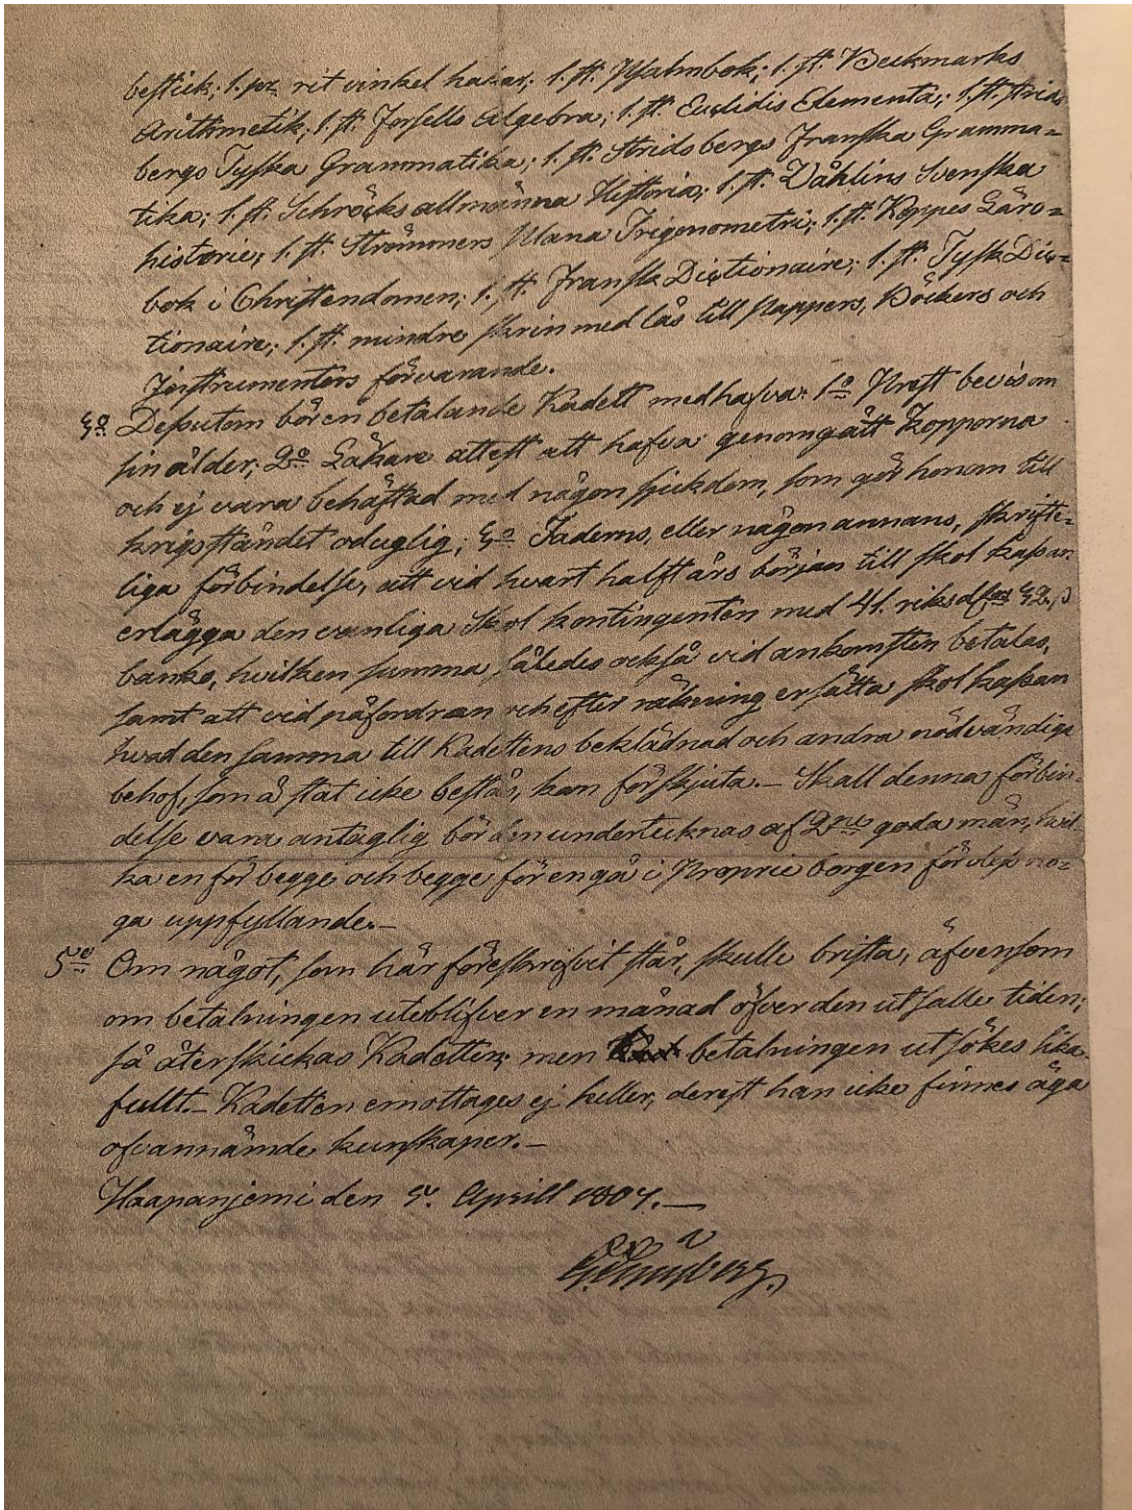 bestick; 1. pr rit vinkel hakar; 1. st. Psalmbok; 1. st. Beckmarks
Arithmetik; 1. st. Forsells Algebra; 1. st. Euclidis Elementa; 1. st. Strids
bergs Tyska Grammatika; 1. st. Stridsbergs Franska Gramma=
tika; 1. st. Schröcks allmänna Historia; 1. st. Dahlins Svenska
historie; 1. st. Strömmers Plana Trigonometri; 1. st. Koppes Läro=
bok i Christendomen; 1. st. Fransk Dictionaire; 1. st. Tysk Dic=
tionaire; 1. st. mindre skrin med lås till Pappers, Böckers och
Instrumenters förvarande.
Dessutom bör en betalande Kadett medhafva: 1o Prest bevis om
sin ålder; 2o Läkare attest att hafva genomgått Kopporna
och ej vara behäftad med någon sjukdom, som gör honom till
krigsståndet oduglig; 3o Faderns, eller någon annans, skrifte=
liga förbindelse, att vid hvart halft års början till skol kassan
erlägga den vanliga Skol kontingenten med 41. riksd 32. s
banko, hvilken summa således också vid ankomsten betalas,
samt att vid påfordran och efter räkning ersätta skol kassan
hvad den samma till Kadettens beklädnad och andra nödvändiga
behof, som å stat icke bestås, kan förskjuta.— Skall denna förbin=
delse vara antaglig bör den undertecknas af 2ne goda män, hvil=
ka en för begge och begge för en gå i Proprie borgen för dess no=
ga uppfyllande.—
5o Om något, som här föreskrifvit står, skulle brista, äfvensom
om betalningen uteblifver en månad öfver den utsatte tiden;
så återskickas Kadetten; men betalningen utsökes lika
fullt.— Kadetten emottages ej heller, derest han icke finnes äga
ofvannämde kunskaper.—
Haapaniemi den Aprill 1807.—